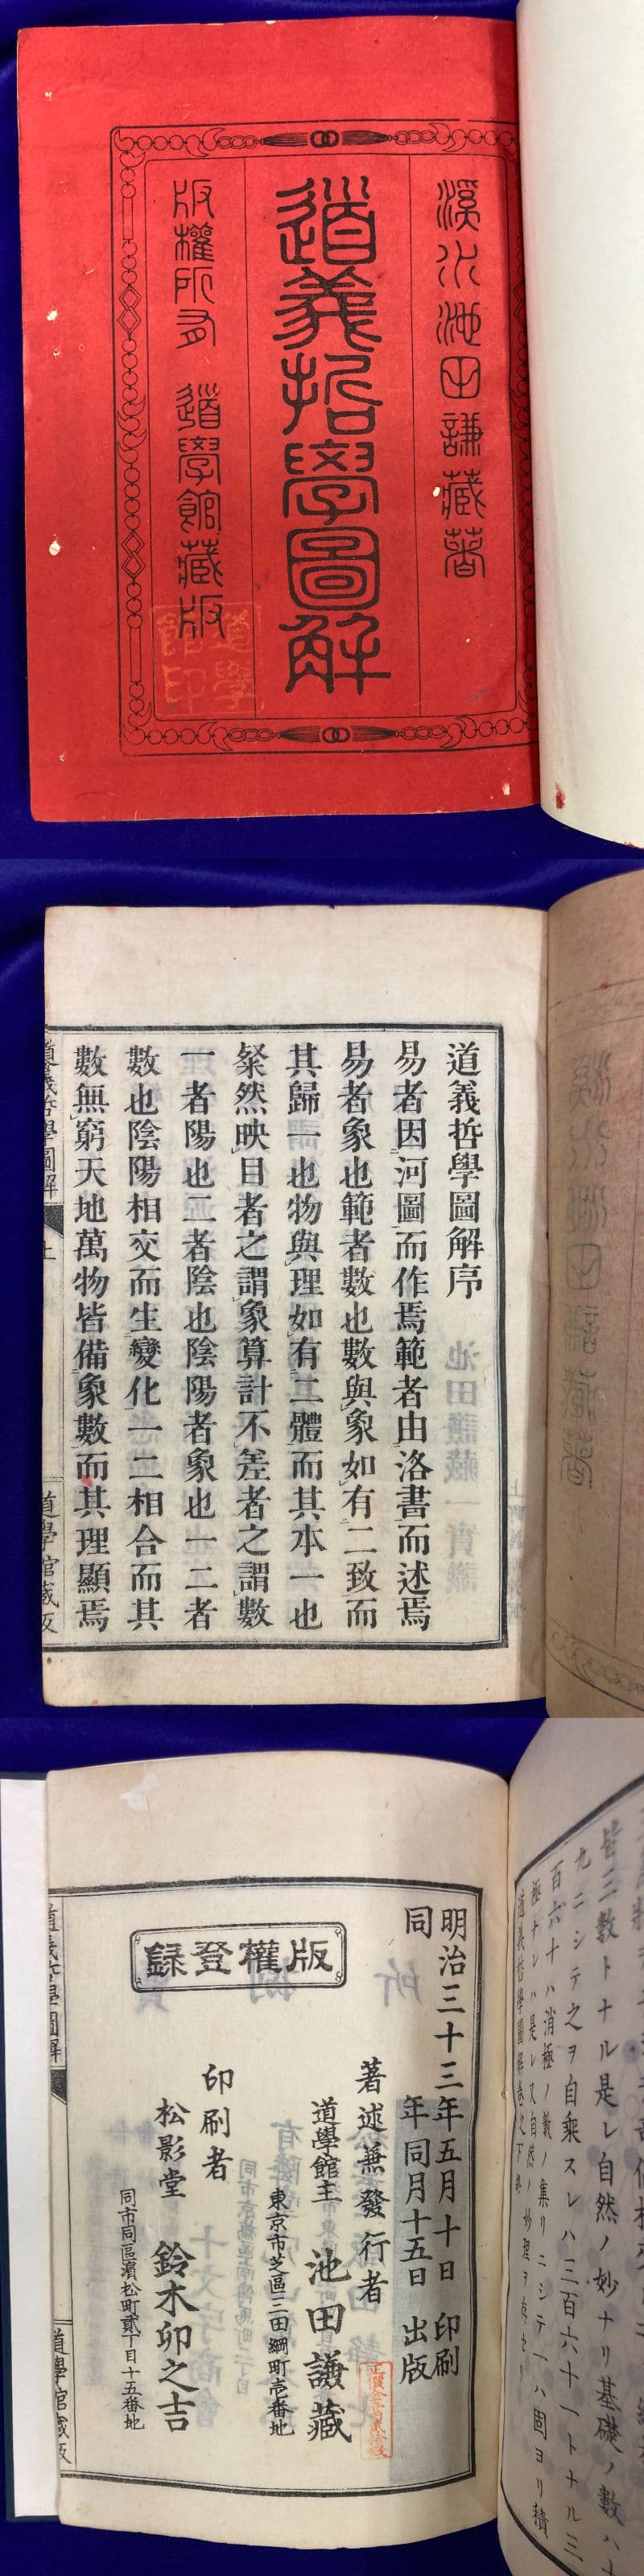 溪水池田謙藏著
道義哲學圖解
版權所有 道學館藏版
道學館印
道義哲學圖解序
易者因河圖而作焉範者由洛書而述焉
易者象也範者數也數與象如有二致而
其歸一也物與理如有二體而其本一也
粲然映目者之謂象算計不差者之謂數
一者陽也二者陰也陰陽者象也一二者
數也陰陽相交而生變化一二相合而其
數無窮天地萬物皆備象數而其理顯焉
道義哲學圖解
上
道學館藏版
皆三數トナル是レ自然ノ妙ナリ基礎ノ數ハ十
九ニシテ之ヲ自乘スレハ三百六十一トナル三
百六十ハ消極ノ義ノ集リニシテ一ハ固ヨリ積
極ナレハ是レ又自然ノ妙理ヲ
道義哲學圖解卷之下終
明治三十三年五月十日 印刷
同 年同月十五日 出版
版權登録
著述兼發行者
道學館主 池田謙藏
東京市芝區三田綱町壱番地
印刷者
松影堂 鈴木卯之吉
同市同區濱松町貳丁目十五番地
道義哲學圖解
道學館藏版